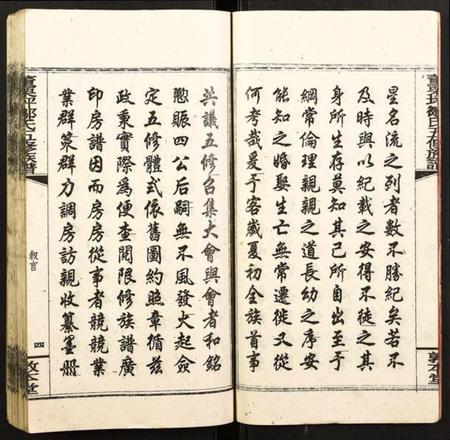 星名流之列者數不勝紀矣若不
及時與以紀載之安得不徒之其
身所生存莫知其已所自出至于
綱常倫理親親之道長幼之序安
能知之婚娶生亡無常遷徙又從
何考哉爰于客歲夏初全族首事
敦本堂
共議五修召集大會與會者和銘
懃賑四公后嗣無不風發火起僉
定五修體式依舊圖約照章循茲
政秉實際為便查閱限修族譜廣
印房譜因而房房從事者兢兢業
業群策群力調房訪親收纂墨冊
敘言
四
敦本堂